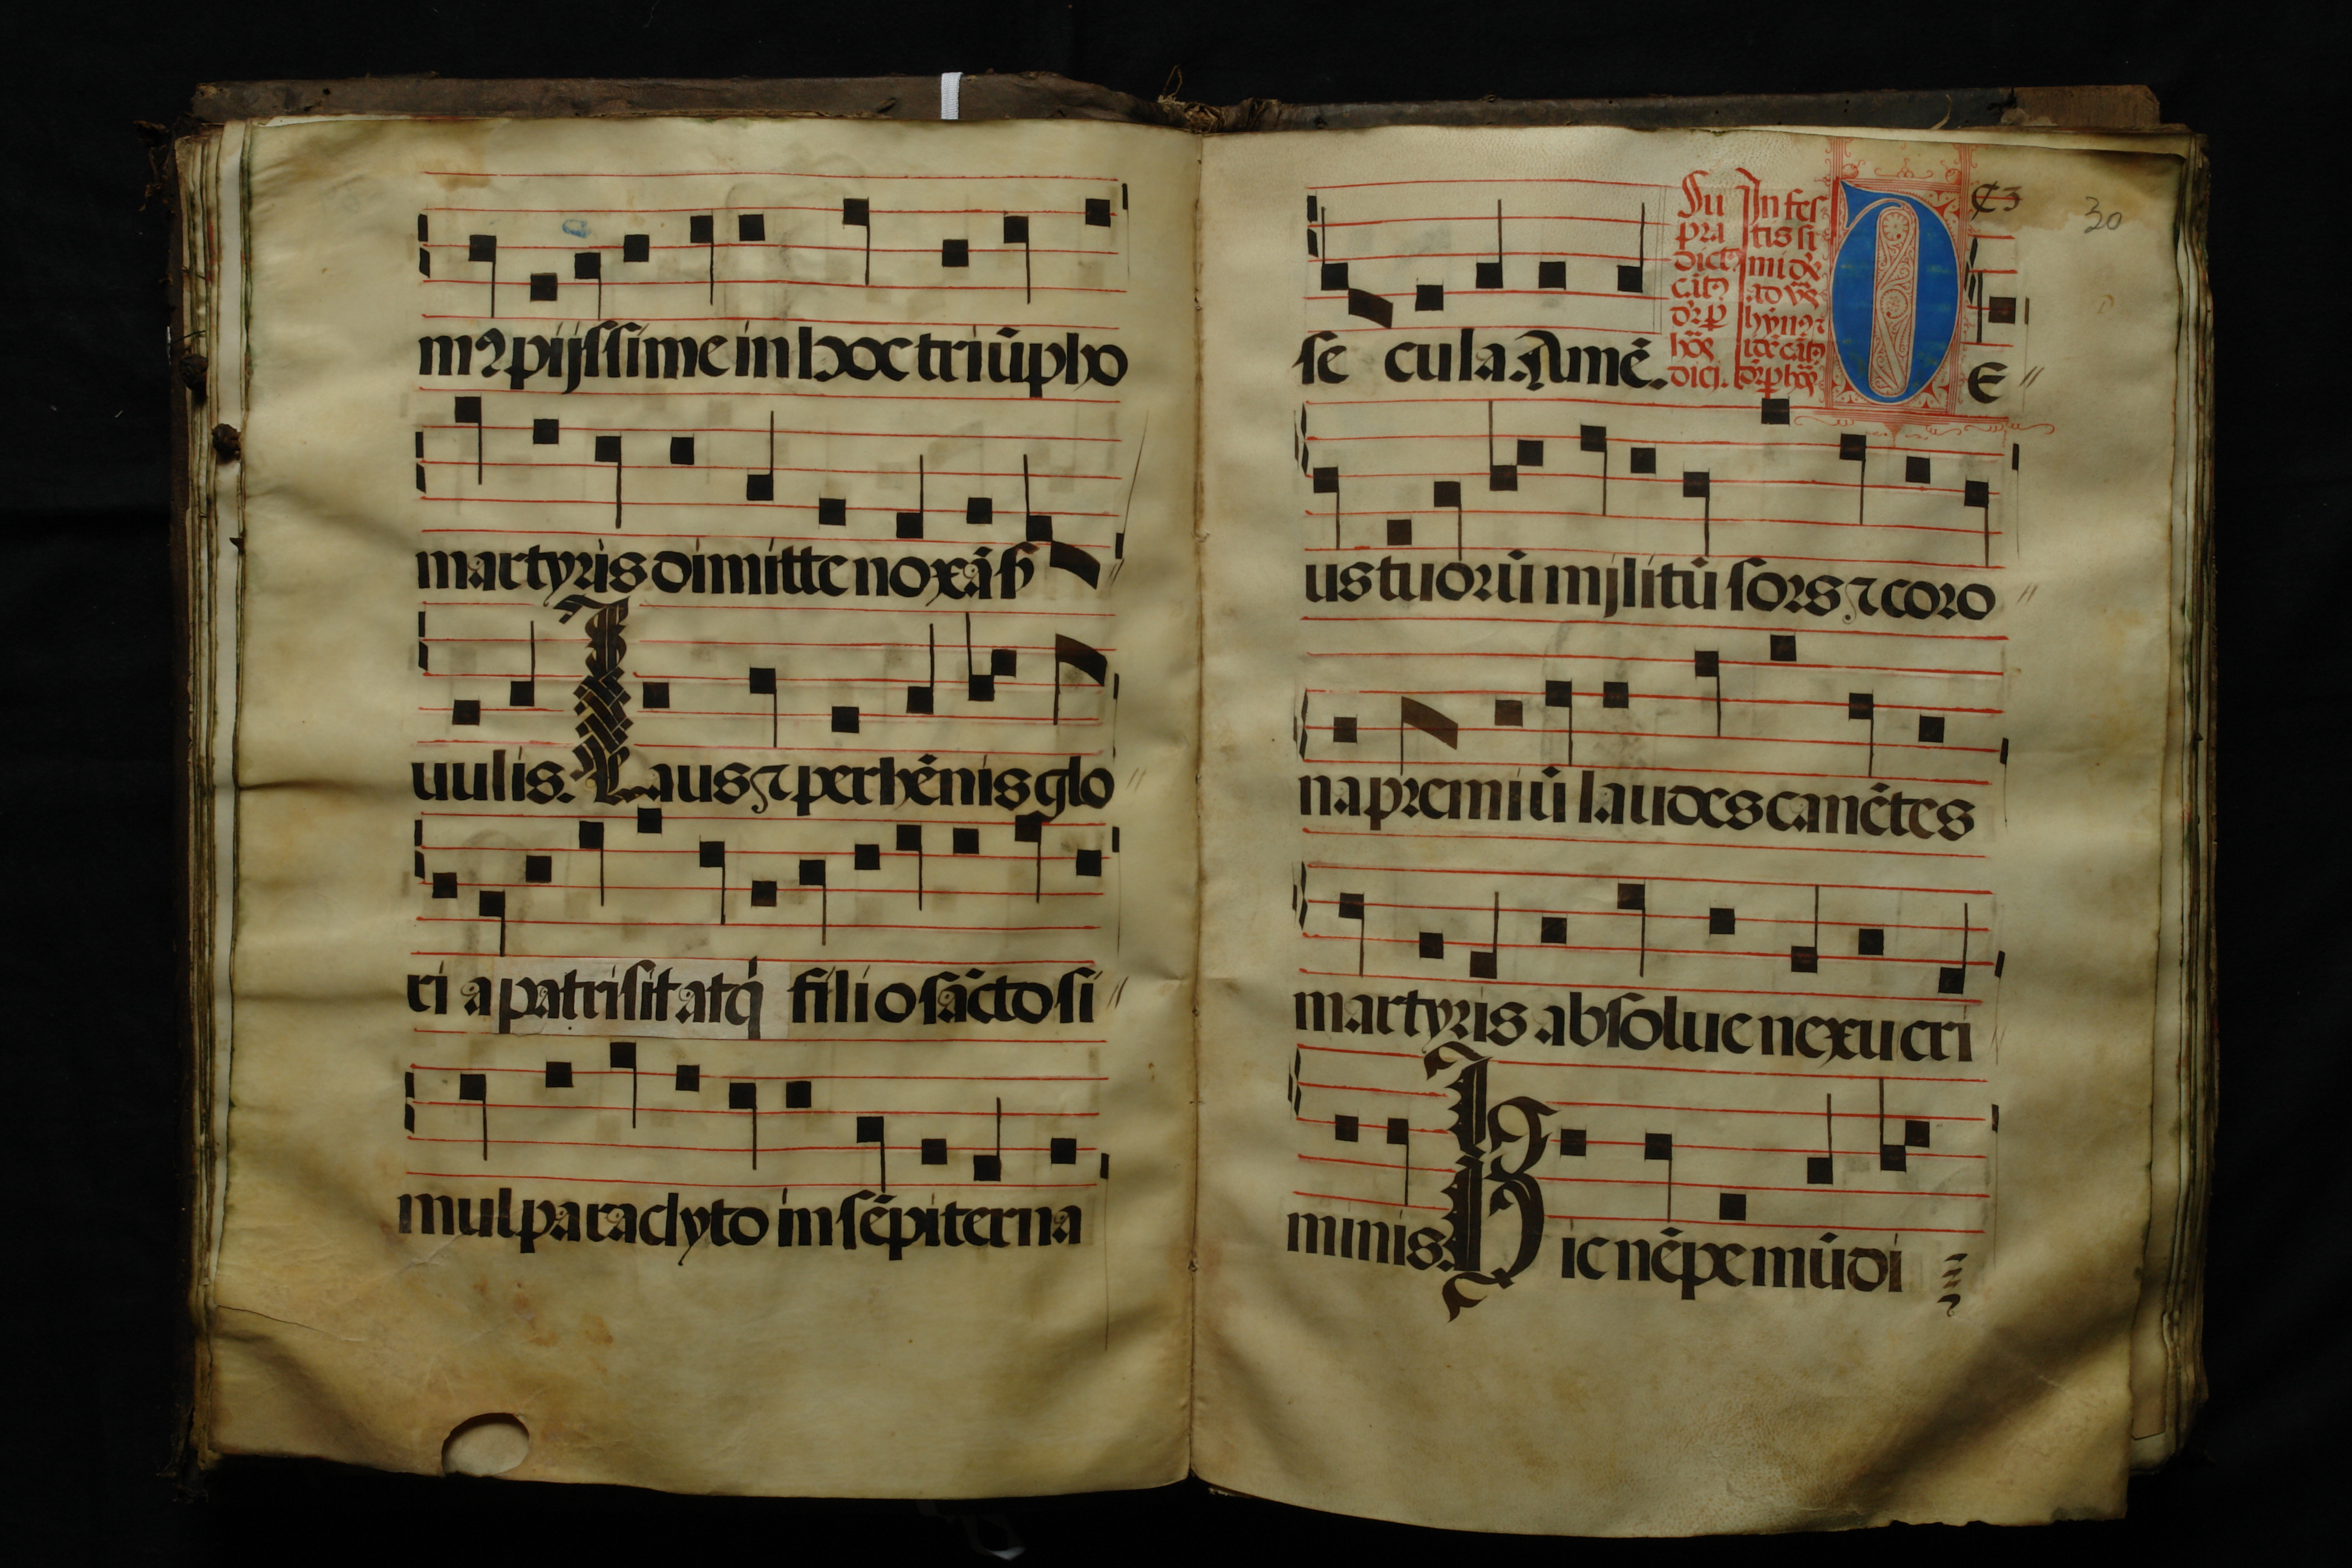 mꝰ pijssime in hoc triūpho
martyris dimitte noxā ẞ
uulis. Laus ⁊ perhēnis glo
ri a patri sit atq́ filio sācto si
mul paraclyto in sēpiterna
30
se cula. Amē.
Su
pra
dictꝰ
In fes
tis si
DE
us tuorū militū sors ⁊ coro
na premiū laudes canētes
martyris absolue nexu cri
minis. Hic nēpe mūdi